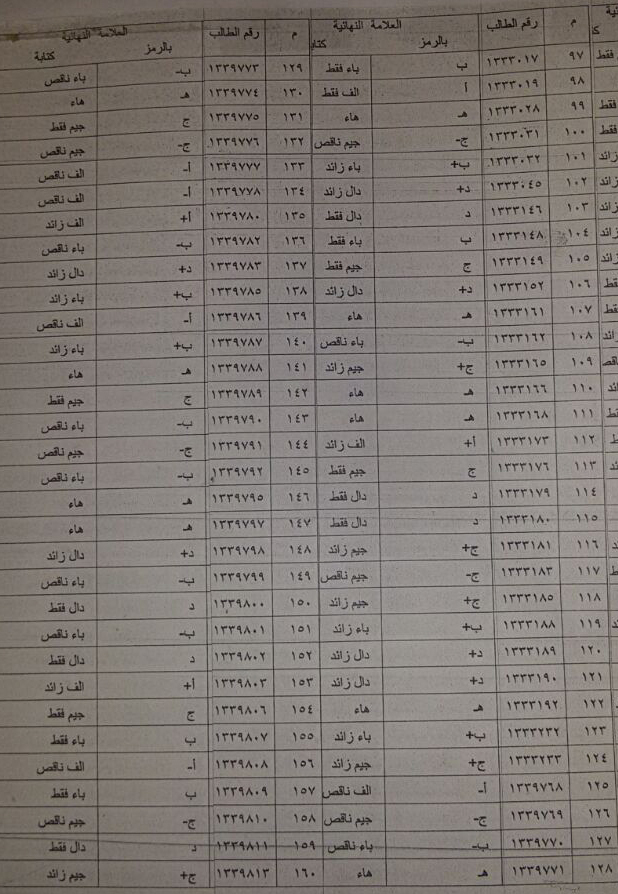 م رقم الطالب العلامة النهائية م رقم الطالب العلامة النهائية
بالرمز كتابة بالرمز كتابة
٩٧ ١٣٣٣٠١٧ ب باء فقط ١٢٩ ١٣٣٩٧٧٣ ب- باء ناقص
٩٨ ١٣٣٣٠١٩ أ الف فقط ١٣٠ ١٣٣٩٧٧٤ هـ هاء
٩٩ ١٣٣٣٠٢٨ هـ هاء ١٣١ ١٣٣٩٧٧٥ ج جيم فقط
١٠٠ ١٣٣٣٠٣١ ج- جيم ناقص ١٣٢ ١٣٣٩٧٧٦ ج- جيم ناقص
١٠١ ١٣٣٣٠٣٢ ب+ باء زائد ١٣٣ ١٣٣٩٧٧٧ أ- الف ناقص
١٠٢ ١٣٣٣٠٤٥ د+ دال زائد ١٣٤ ١٣٣٩٧٧٨ أ- الف ناقص
١٠٣ ١٣٣٣١٤٦ د دال فقط ١٣٥ ١٣٣٩٧٨٠ أ+ الف زائد
١٠٤ ١٣٣٣١٤٨ ب باء فقط ١٣٦ ١٣٣٩٧٨٢ ب- باء ناقص
١٠٥ ١٣٣٣١٤٩ ج جيم فقط ١٣٧ ١٣٣٩٧٨٣ د+ دال زائد
١٠٦ ١٣٣٣١٥٢ د+ دال زائد ١٣٨ ١٣٣٩٧٨٥ ب+ باء زائد
١٠٧ ١٣٣٣١٦١ هـ هاء ١٣٩ ١٣٣٩٧٨٦ أ- الف ناقص
١٠٨ ١٣٣٣١٦٢ ب- باء ناقص ١٤٠ ١٣٣٩٧٨٧ ب+ باء زائد
١٠٩ ١٣٣٣١٦٥ ج+ جيم زائد ١٤١ ١٣٣٩٧٨٨ هـ هاء
١١٠ ١٣٣٣١٦٦ هـ هاء ١٤٢ ١٣٣٩٧٨٩ ج جيم فقط
١١١ ١٣٣٣١٦٨ هـ هاء ١٤٣ ١٣٣٩٧٩٠ ب- باء ناقص
١١٢ ١٣٣٣١٧٣ أ+ الف زائد ١٤٤ ١٣٣٩٧٩١ ج- جيم ناقص
١١٣ ١٣٣٣١٧٦ ج جيم فقط ١٤٥ ١٣٣٩٧٩٢ ب- باء ناقص
١١٤ ١٣٣٣١٧٩ د دال فقط ١٤٦ ١٣٣٩٧٩٥ هـ هاء
١١٥ ١٣٣٣١٨٠ د دال فقط ١٤٧ ١٣٣٩٧٩٧ هـ هاء
١١٦ ١٣٣٣١٨١ ج+ جيم زائد ١٤٨ ١٣٣٩٧٩٨ د+ دال زائد
١١٧ ١٣٣٣١٨٣ ج- جيم ناقص ١٤٩ ١٣٣٩٧٩٩ ب- باء ناقص
١١٨ ١٣٣٣١٨٥ ج+ جيم زائد ١٥٠ ١٣٣٩٨٠٠ د دال فقط
١١٩ ١٣٣٣١٨٨ ب+ باء زائد ١٥١ ١٣٣٩٨٠١ ب- باء ناقص
١٢٠ ١٣٣٣١٨٩ د+ دال زائد ١٥٢ ١٣٣٩٨٠٢ د دال فقط
١٢١ ١٣٣٣١٩٠ د+ دال زائد ١٥٣ ١٣٣٩٨٠٣ أ+ الف زائد
١٢٢ ١٣٣٣١٩٢ هـ هاء ١٥٤ ١٣٣٩٨٠٦ ج جيم فقط
١٢٣ ١٣٣٣٢٣٢ ب+ باء زائد ١٥٥ ١٣٣٩٨٠٧ ب باء فقط
١٢٤ ١٣٣٣٢٣٣ ج+ جيم زائد ١٥٦ ١٣٣٩٨٠٨ أ- الف ناقص
١٢٥ ١٣٣٩٧٦٨ أ- الف ناقص ١٥٧ ١٣٣٩٨٠٩ ب باء فقط
١٢٦ ١٣٣٩٧٦٩ ج- جيم ناقص ١٥٨ ١٣٣٩٨١٠ ج- جيم ناقص
١٢٧ ١٣٣٩٧٧٠ ب- باء ناقص ١٥٩ ١٣٣٩٨١١ د دال فقط
١٢٨ ١٣٣٩٧٧١ هـ هاء ١٦٠ ١٣٣٩٨١٣ ج+ جيم زائد